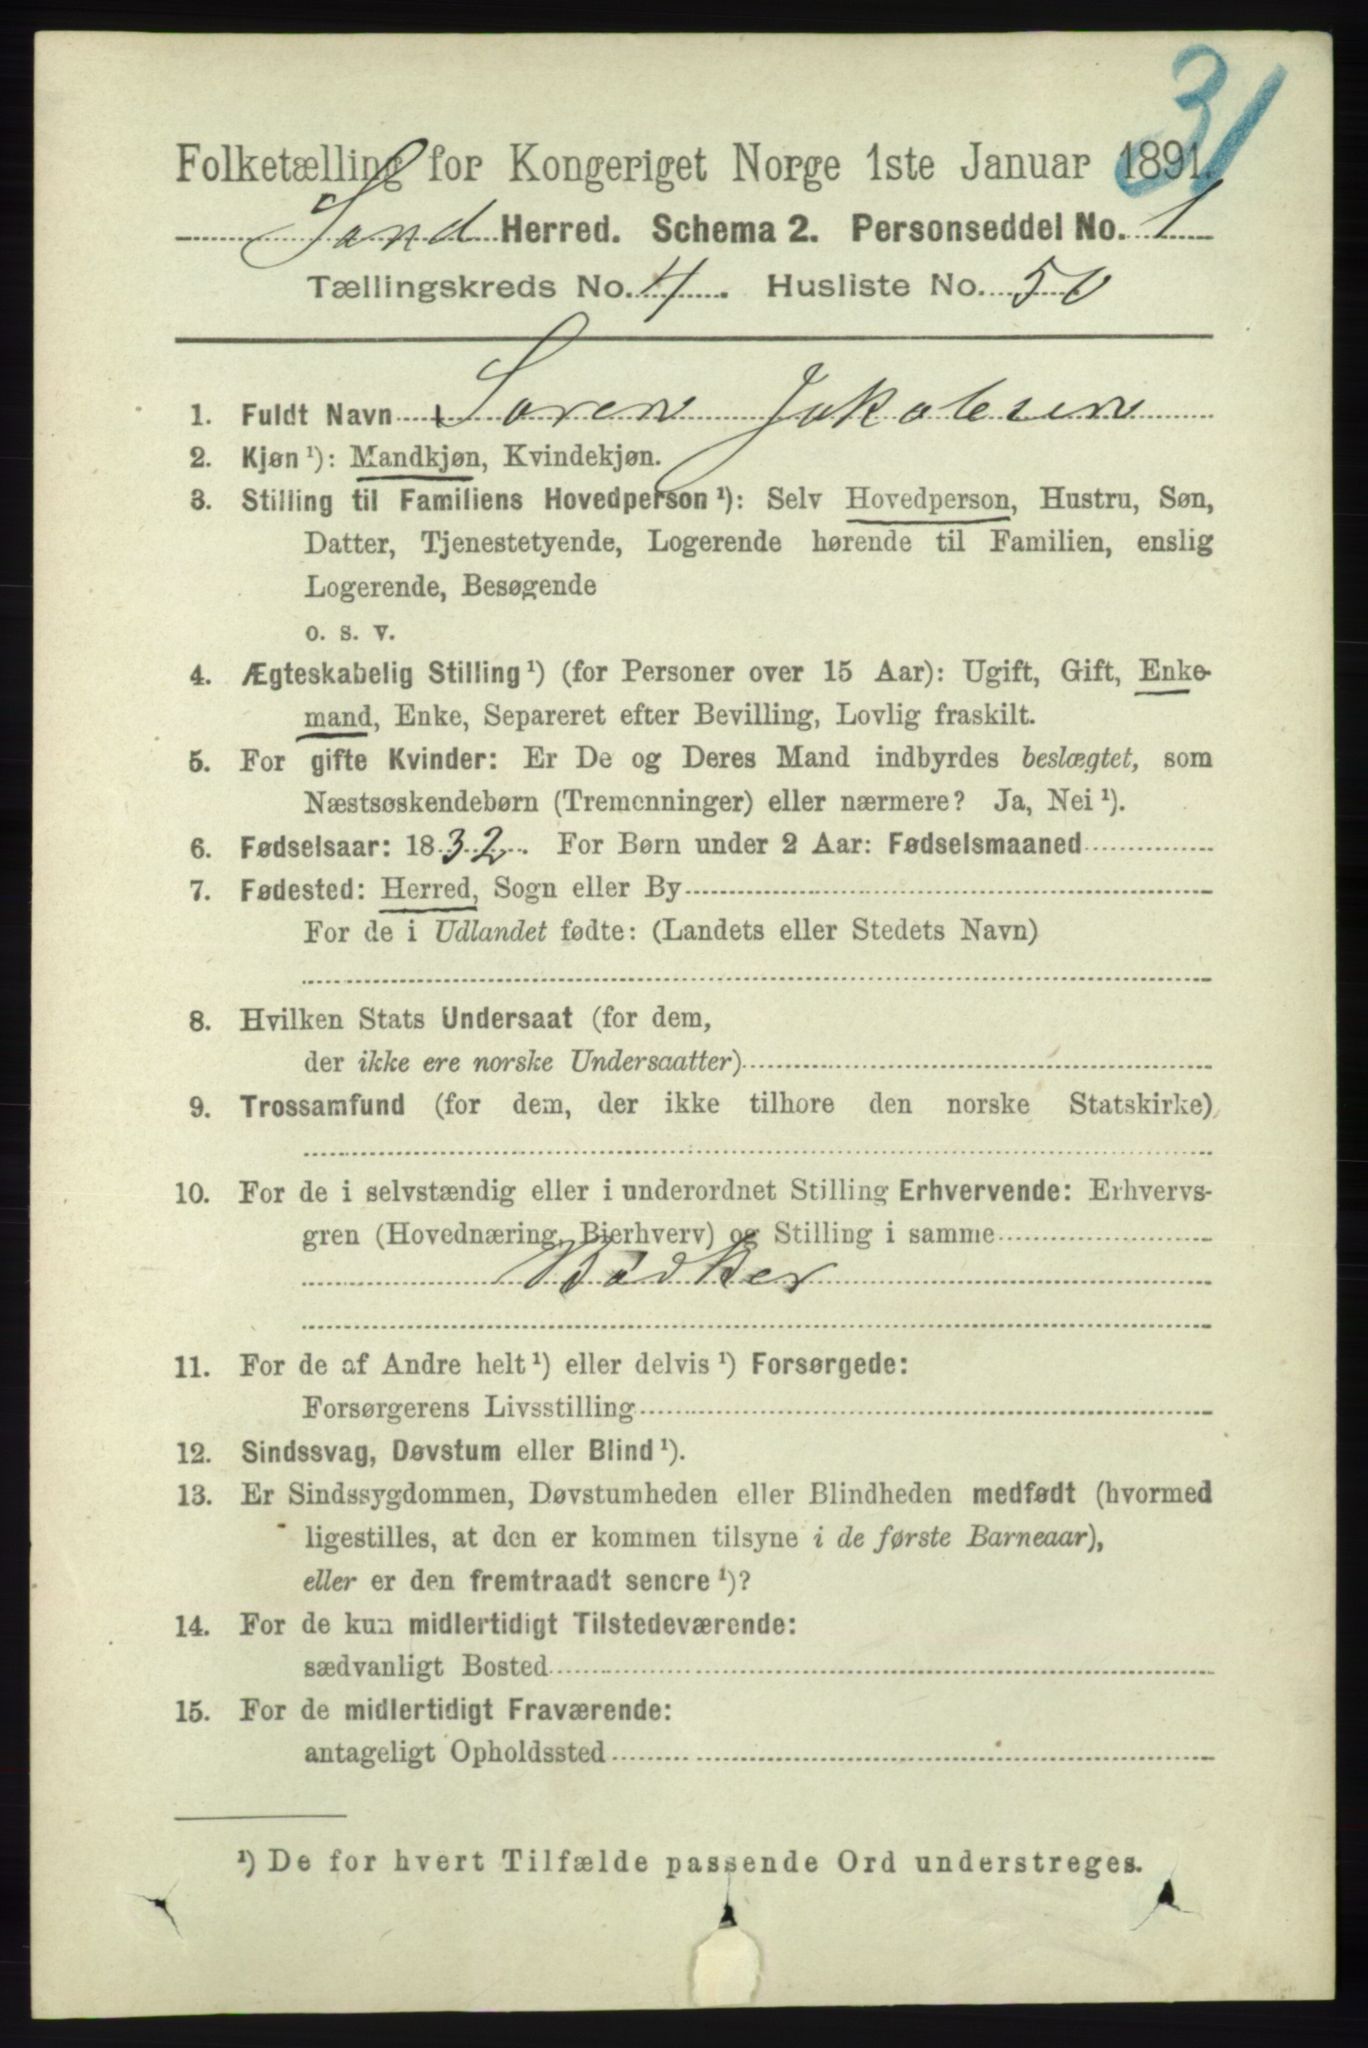 31
Folketælling for Kongeriget Norge 1ste Januar 1891.
Sand Herred. Schema 2. Personseddel No. 1
Tællingskreds No. 4. Husliste No. 50
1. Fuldt Navn Søren Jakobsen
2. Kjøn ¹): Mandkjøn, Kvindekjøn.
3. Stilling til Familiens Hovedperson ¹): Selv Hovedperson, Hustru, Søn,
Datter, Tjenestetyende, Logerende hørende til Familien, enslig
Logerende, Besøgende
o. s. v.
4. Ægteskabelig Stilling ¹) (for Personer over 15 Aar): Ugift, Gift, Enke-
mand, Enke, Separeret efter Bevilling, Lovlig fraskilt.
5. For gifte Kvinder: Er De og Deres Mand indbyrdes beslægtet, som
Næstsøskendebørn (Tremenninger) eller nærmere? Ja, Nei ¹).
6. Fødselsaar: 1832. For Børn under 2 Aar: Fødselsmaaned
7. Fødested: Herred, Sogn eller By
For de i Udlandet fødte: (Landets eller Stedets Navn)
8. Hvilken Stats Undersaat (for dem,
der ikke ere norske Undersaatter)
9. Trossamfund (for dem, der ikke tilhøre den norske Statskirke)
10. For de i selvstændig eller i underordnet Stilling Erhvervende: Erhvervs-
gren (Hovednæring, Bierhverv) og Stilling i samme
Bødker
11. For de af Andre helt ¹) eller delvis ¹) Forsørgede:
Forsørgerens Livsstilling
12. Sindssvag, Døvstum eller Blind ¹).
13. Er Sindssygdommen, Døvstumheden eller Blindheden medfødt (hvormed
ligestilles, at den er kommen tilsyne i de første Barneaar),
eller er den fremtraadt senere ¹)?
14. For de kun midlertidigt Tilstedeværende:
sædvanligt Bosted
15. For de midlertidigt Fraværende:
antageligt Opholdssted
¹) De for hvert Tilfælde passende Ord understreges.